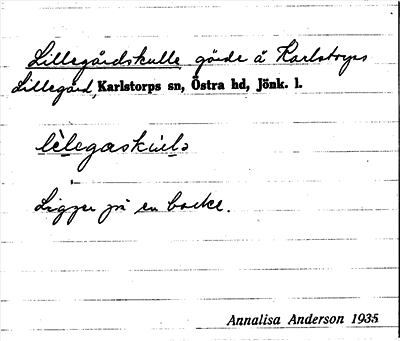 Lillegårdskulle gärde å Karlstorps
Lillegård, Karlstorps sn, Östra hd, Jönk. l.
lèlegaskulə
Ligger på en backe.
Annalisa Anderson 1935